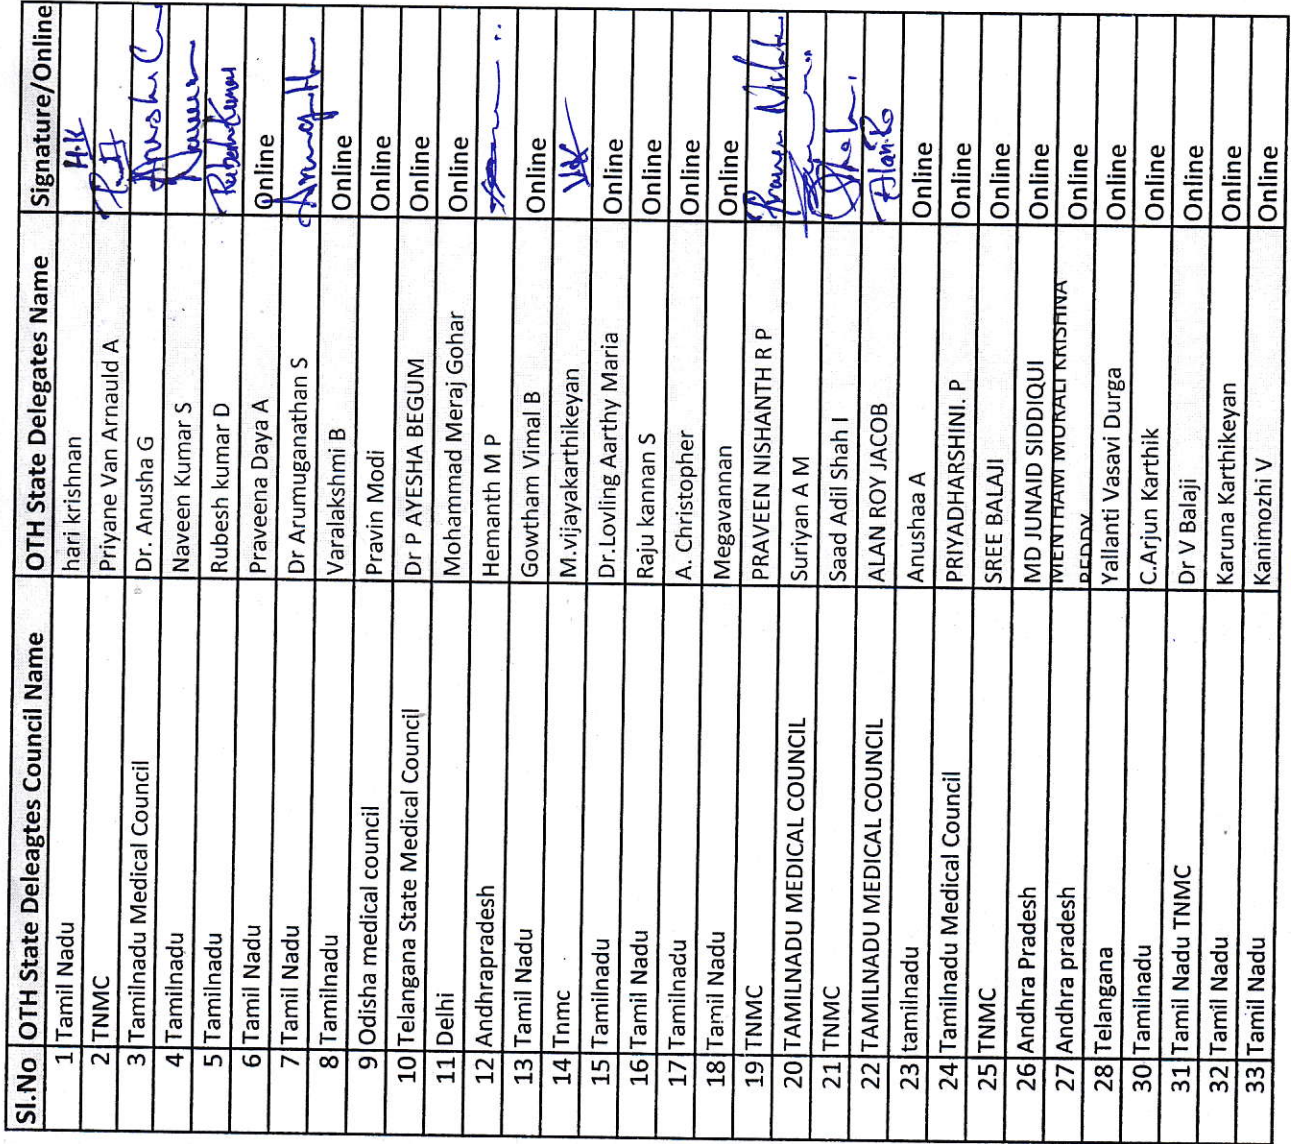 Sl.No OTH State Deleagtes Council Name OTH State Delegates Name Signature/Online
1 Tamil Nadu hari krishnan H.K
2 TNMC Priyane Van Arnauld A
3 Tamilnadu Medical Council Dr. Anusha G Anusha G
4 Tamilnadu Naveen Kumar S
5 Tamilnadu Rubesh kumar D Rubesh Kumar
6 Tamil Nadu Praveena Daya A Online
7 Tamil Nadu Dr Arumuganathan S
8 Tamilnadu Varalakshmi B Online
9 Odisha medical council Pravin Modi Online
10 Telangana State Medical Council Dr P AYESHA BEGUM Online
11 Delhi Mohammad Meraj Gohar Online
12 Andhrapradesh Hemanth M P
13 Tamil Nadu Gowtham Vimal B Online
14 Tnmc M.vijayakarthikeyan
15 Tamilnadu Dr.Lovling Aarthy Maria Online
16 Tamil Nadu Raju kannan S Online
17 Tamilnadu A. Christopher Online
18 Tamil Nadu Megavannan Online
19 TNMC PRAVEEN NISHANTH R P
20 TAMILNADU MEDICAL COUNCIL Suriyan A M
21 TNMC Saad Adil Shah I
22 TAMILNADU MEDICAL COUNCIL ALAN ROY JACOB
23 tamilnadu Anushaa A Online
24 Tamilnadu Medical Council PRIYADHARSHINI. P Online
25 TNMC SREE BALAJI Online
26 Andhra Pradesh MD JUNAID SIDDIQUI Online
27 Andhra pradesh MENTHAM MURALI KRISHNA REDDY Online
28 Telangana Yallanti Vasavi Durga Online
30 Tamilnadu C.Arjun Karthik Online
31 Tamil Nadu TNMC Dr V Balaji Online
32 Tamil Nadu Karuna Karthikeyan Online
33 Tamil Nadu Kanimozhi V Online